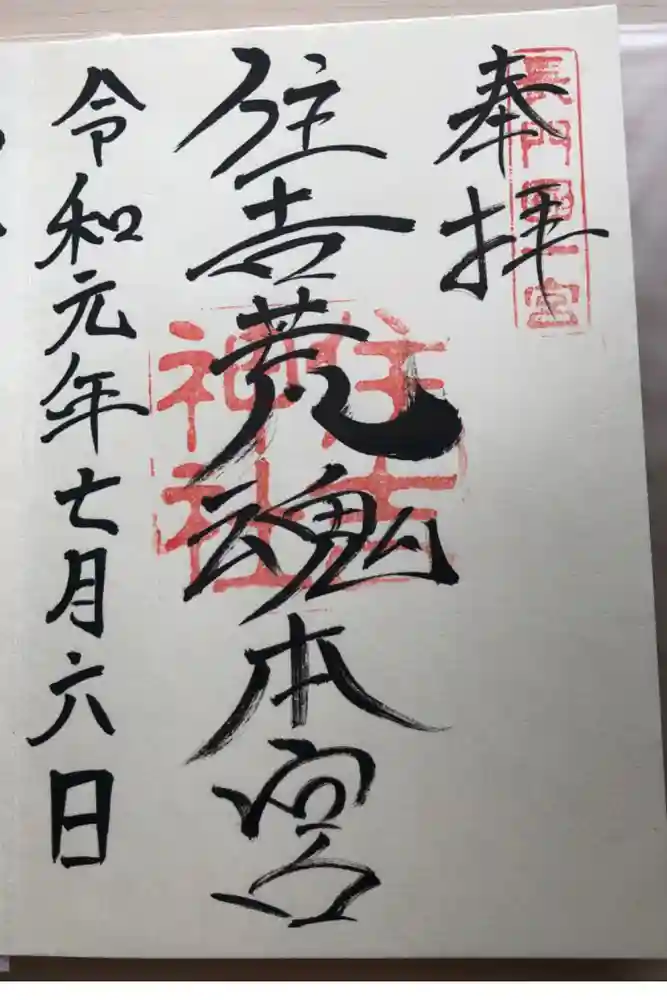 奉拝
長門國一宮
住吉荒魂本宮
住吉神社
令和元年七月六日